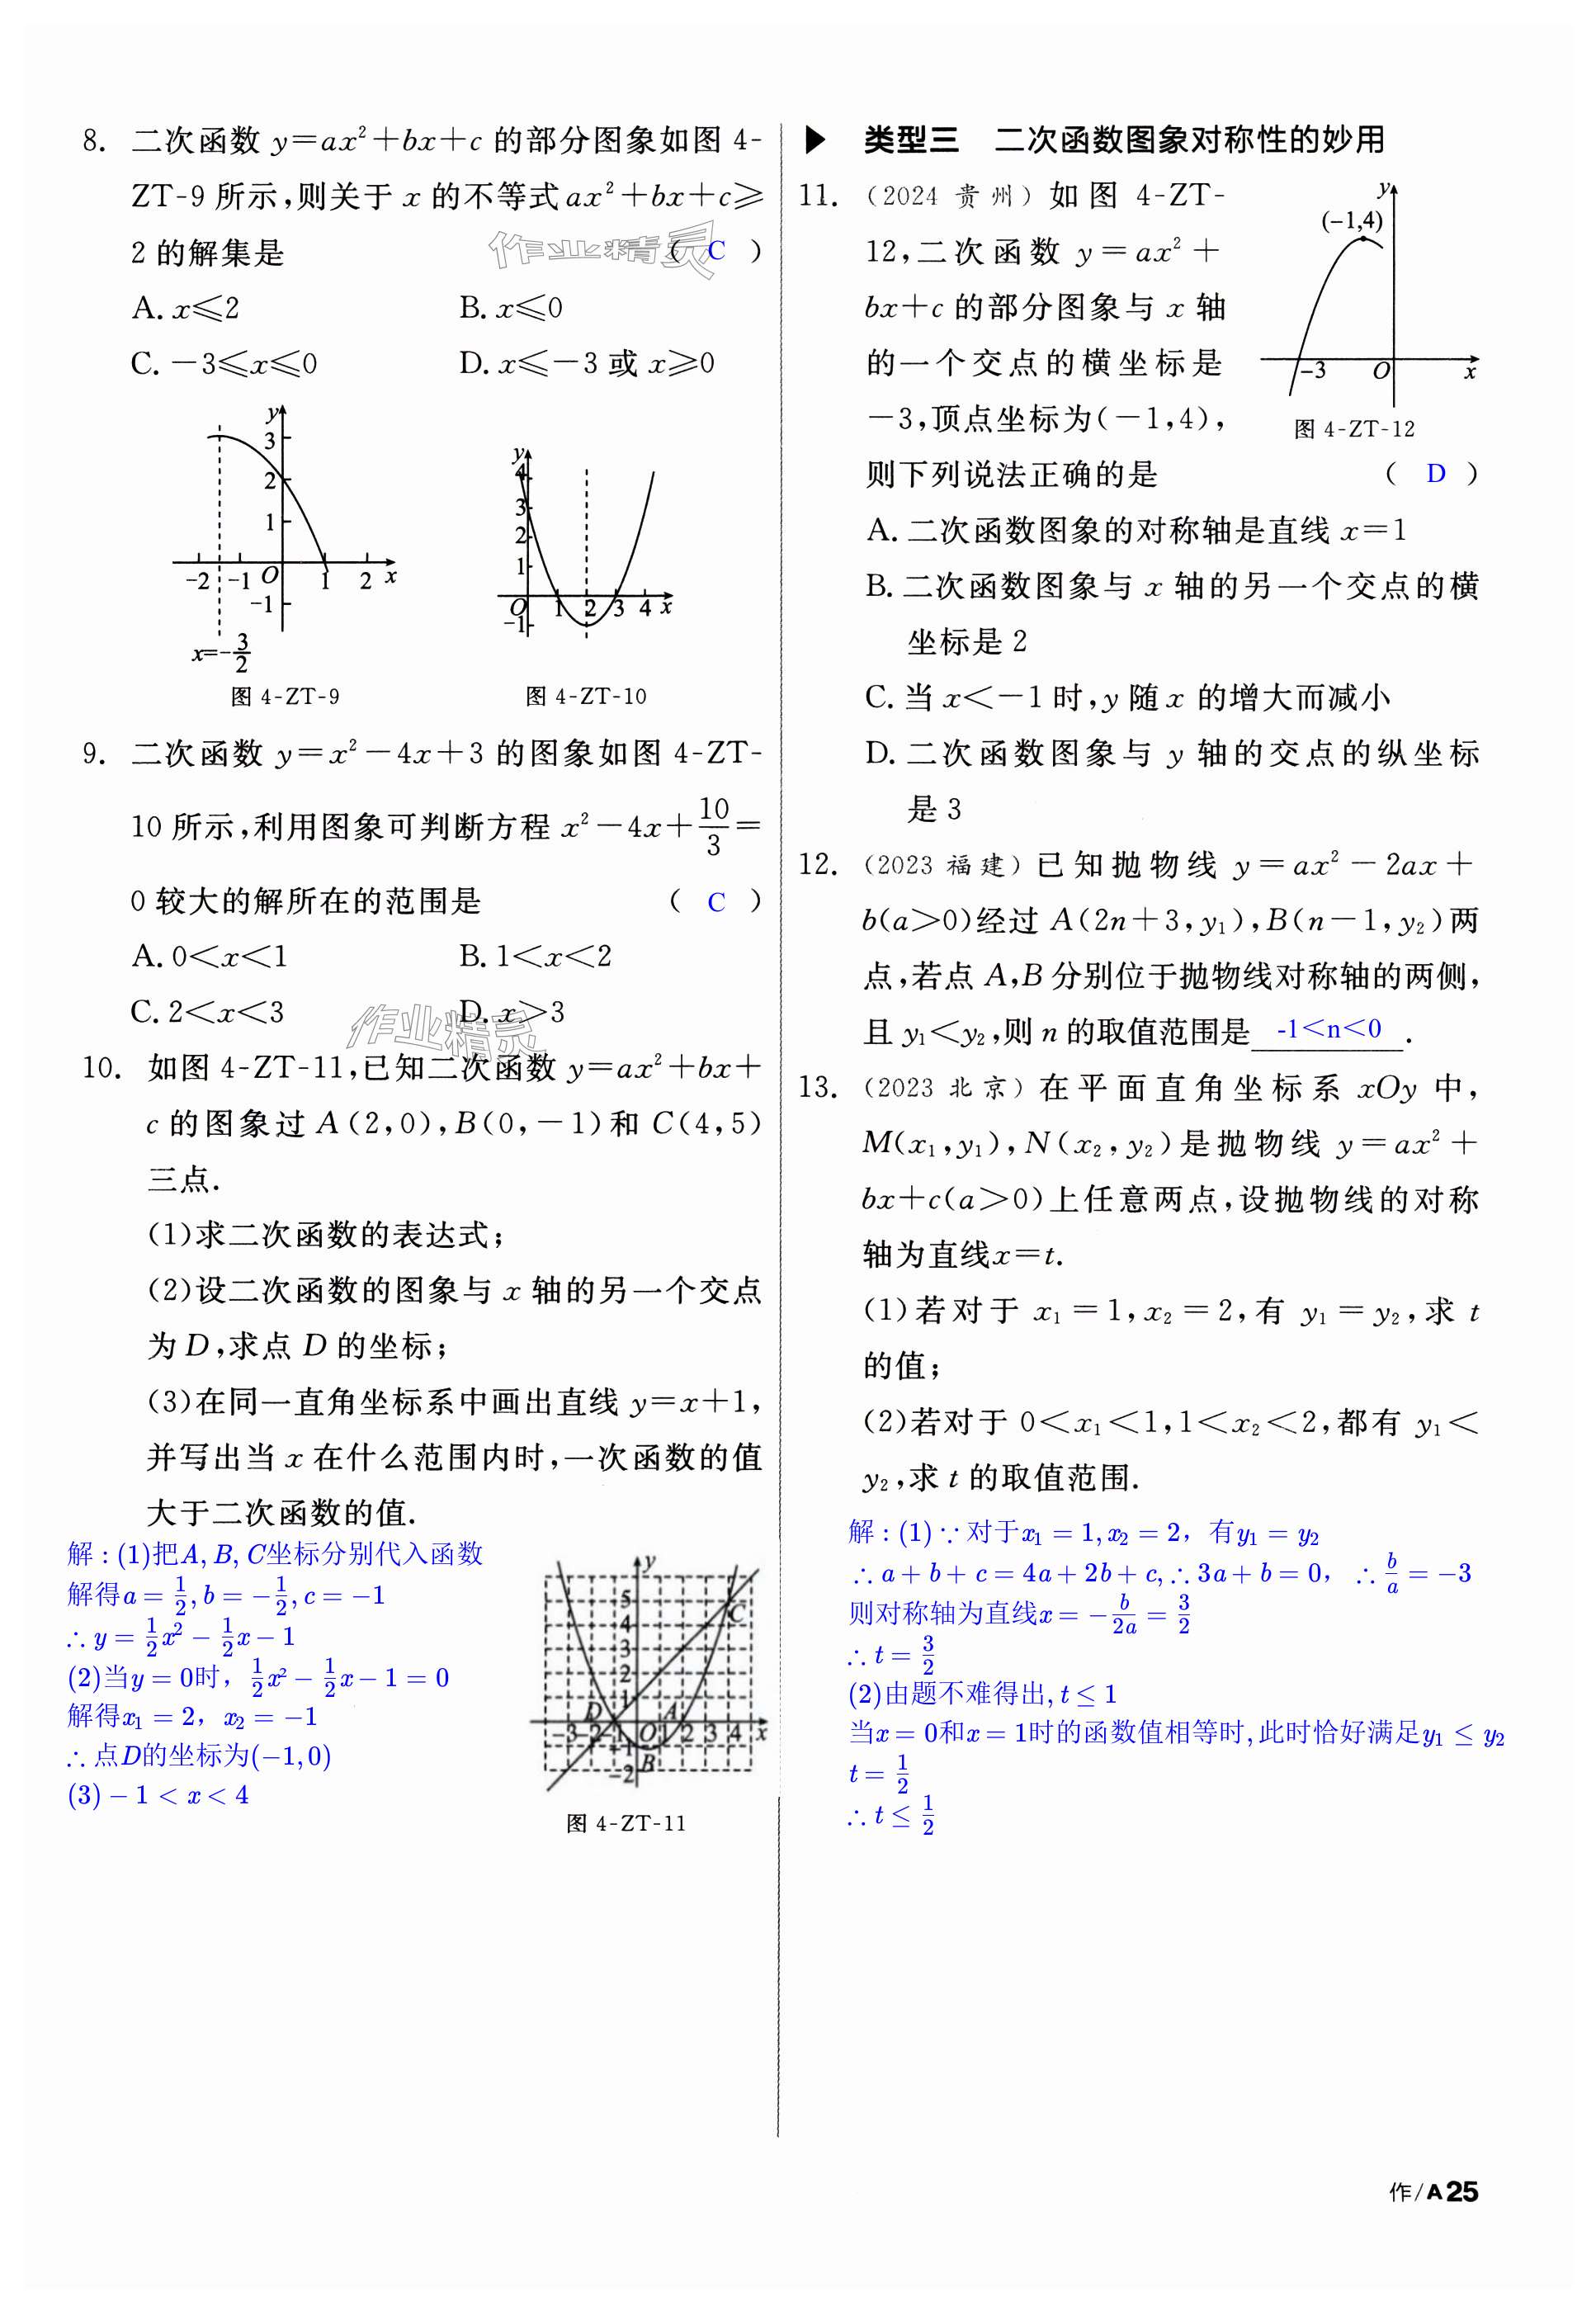 8. 二次函数 y=ax²+bx+c 的部分图象如图 4-
ZT-9 所示,则关于 x 的不等式 ax²+bx+c≥
2 的解集是 ( C )
A. x≤2 B. x≤0
C. -3≤x≤0 D. x≤-3 或 x≥0
y
3
2
1
-2 -1 O 1 2 x
-1
x=-3/2
图 4-ZT-9
y
4
3
2
1
O 1 2 3 4 x
-1
图 4-ZT-10
9. 二次函数 y=x²-4x+3 的图象如图 4-ZT-
10 所示,利用图象可判断方程 x²-4x+10/3=
0 较大的解所在的范围是 ( C )
A. 0<x<1 B. 1<x<2
C. 2<x<3 D. x>3
10. 如图 4-ZT-11,已知二次函数 y=ax²+bx+
c 的图象过 A(2,0),B(0,-1)和 C(4,5)
三点.
(1)求二次函数的表达式;
(2)设二次函数的图象与 x 轴的另一个交点
为 D,求点 D 的坐标;
(3)在同一直角坐标系中画出直线 y=x+1,
并写出当 x 在什么范围内时,一次函数的值
大于二次函数的值.
解:(1)把A,B,C坐标分别代入函数
解得a=1/2,b=-1/2,c=-1
∴y=1/2x²-1/2x-1
(2)当y=0时,1/2x²-1/2x-1=0
解得x₁=2,x₂=-1
∴点D的坐标为(-1,0)
(3)-1<x<4
y
5
C
4
3
2
1
D A
-3 -2 -1 O 2 3 4 x
-1 B
-2
图 4-ZT-11
▶ 类型三 二次函数图象对称性的妙用
11. (2024 贵州)如图 4-ZT-
12,二次函数 y=ax²+
bx+c 的部分图象与 x 轴
的一个交点的横坐标是
-3,顶点坐标为(-1,4),
则下列说法正确的是 ( D )
y
(-1,4)
-3 O x
图 4-ZT-12
A. 二次函数图象的对称轴是直线 x=1
B. 二次函数图象与 x 轴的另一个交点的横
坐标是 2
C. 当 x<-1 时,y 随 x 的增大而减小
D. 二次函数图象与 y 轴的交点的纵坐标
是 3
12. (2023 福建)已知抛物线 y=ax²-2ax+
b(a>0)经过 A(2n+3,y₁),B(n-1,y₂)两
点,若点 A,B 分别位于抛物线对称轴的两侧,
且 y₁<y₂,则 n 的取值范围是 -1<n<0 .
13. (2023 北京)在平面直角坐标系 xOy 中,
M(x₁,y₁),N(x₂,y₂)是抛物线 y=ax²+
bx+c(a>0)上任意两点,设抛物线的对称
轴为直线x=t.
(1)若对于 x₁=1,x₂=2,有 y₁=y₂,求 t
的值;
(2)若对于 0<x₁<1,1<x₂<2,都有 y₁<
y₂,求 t 的取值范围.
解:(1)∵对于x₁=1,x₂=2,有y₁=y₂
∴a+b+c=4a+2b+c,∴3a+b=0, ∴b/a=-3
则对称轴为直线x=-b/2a=3/2
∴t=3/2
(2)由题不难得出,t≤1
当x=0和x=1时的函数值相等时,此时恰好满足y₁≤y₂
t=1/2
∴t≤1/2
作业精灵
作业精灵
作/A25